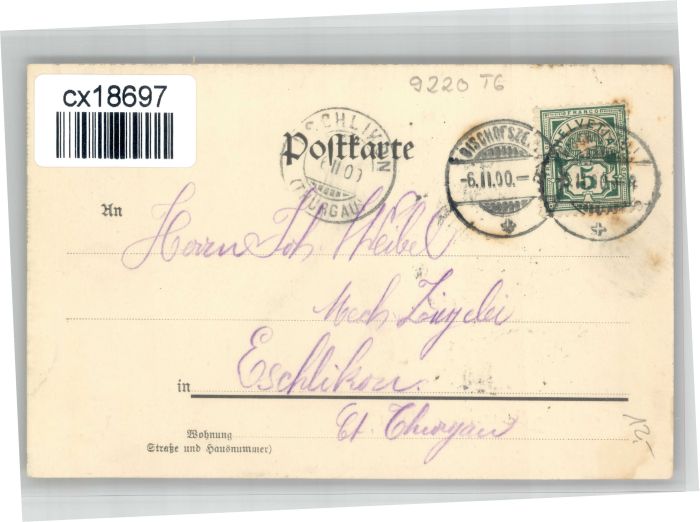 9220 TG
cx18697
ESCHLIKON
(THURGAU)
BISCHOFSZELL
-6.II.00.-
FRANCO
HELVETIA
5
Postkarte
An
Herrn Joh. Weibel
Mech Zieglei
in Eschlikon.
Ct. Thurgau
Wohnung
(Straße und Hausnummer)
12.-